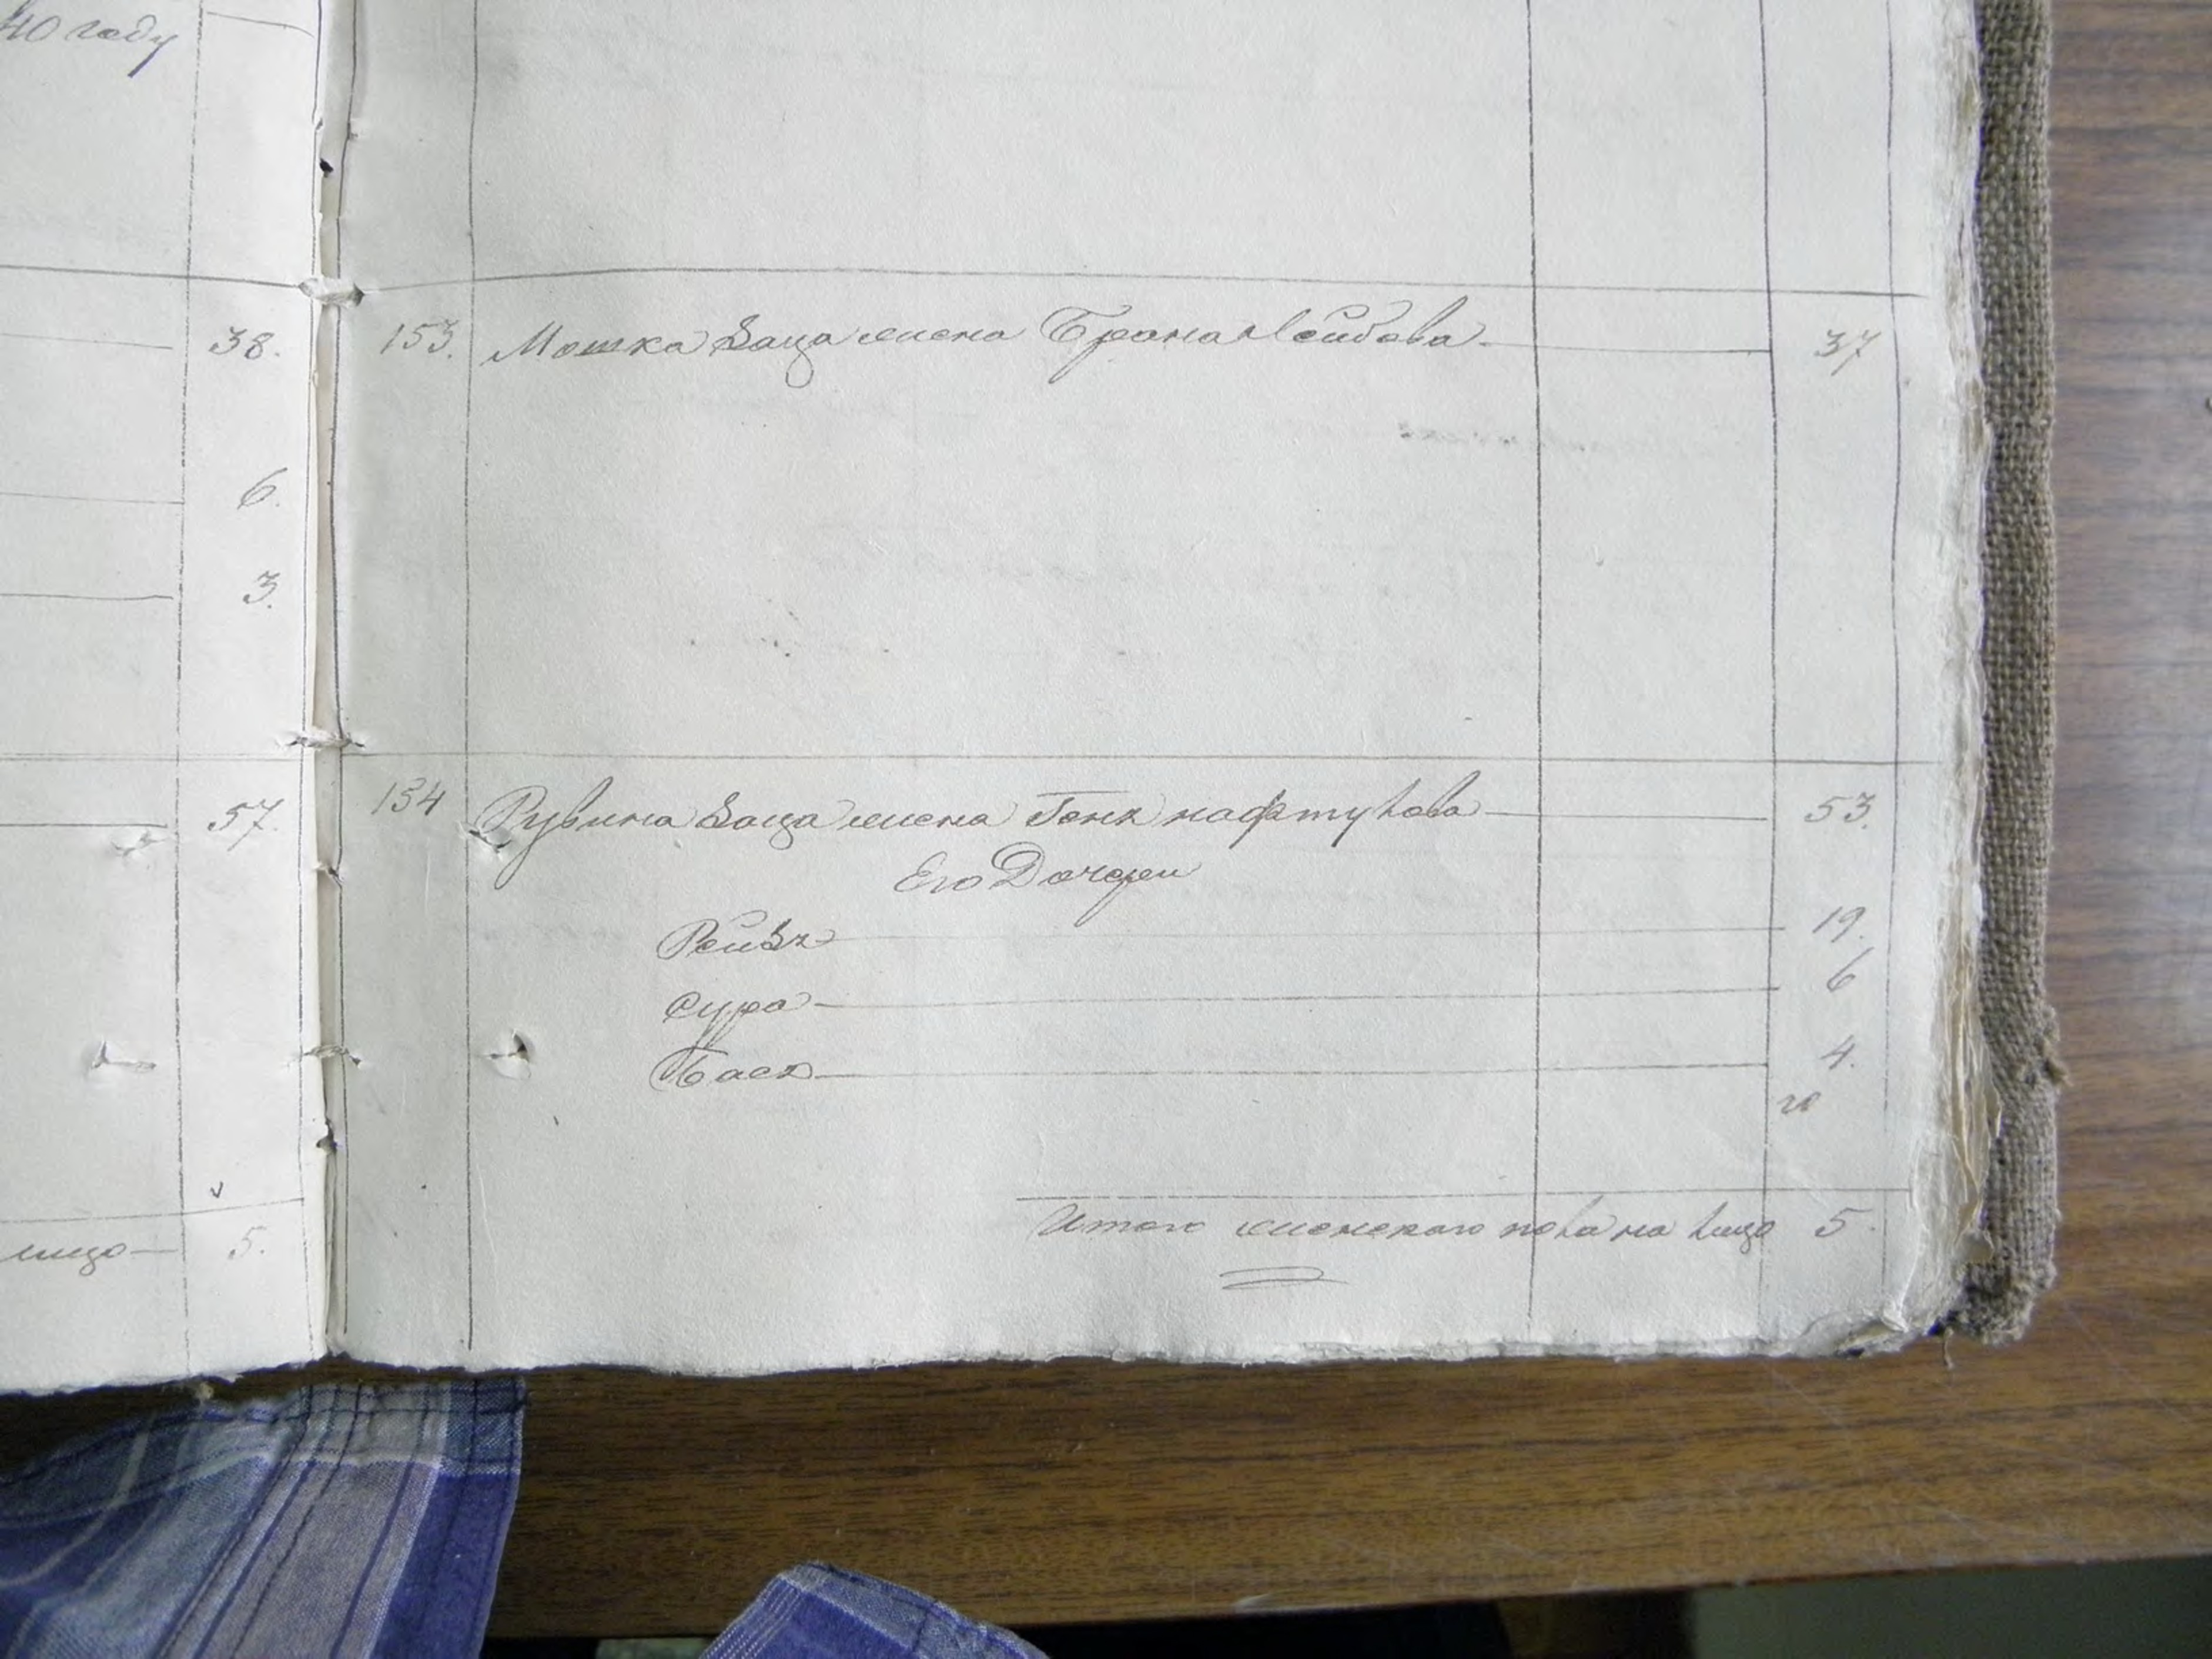 40 году
38.
6.
3.
57.
лицо — 5.
153. Мошка Заца жена Брана Лейбова — 37
154 Рувина Заца жена Геня Нафтулова — 53.
Его Дочери
Рейзя — 19.
Сура — 6
Бася — 4.
Итого женскаго пола на лицо 5.